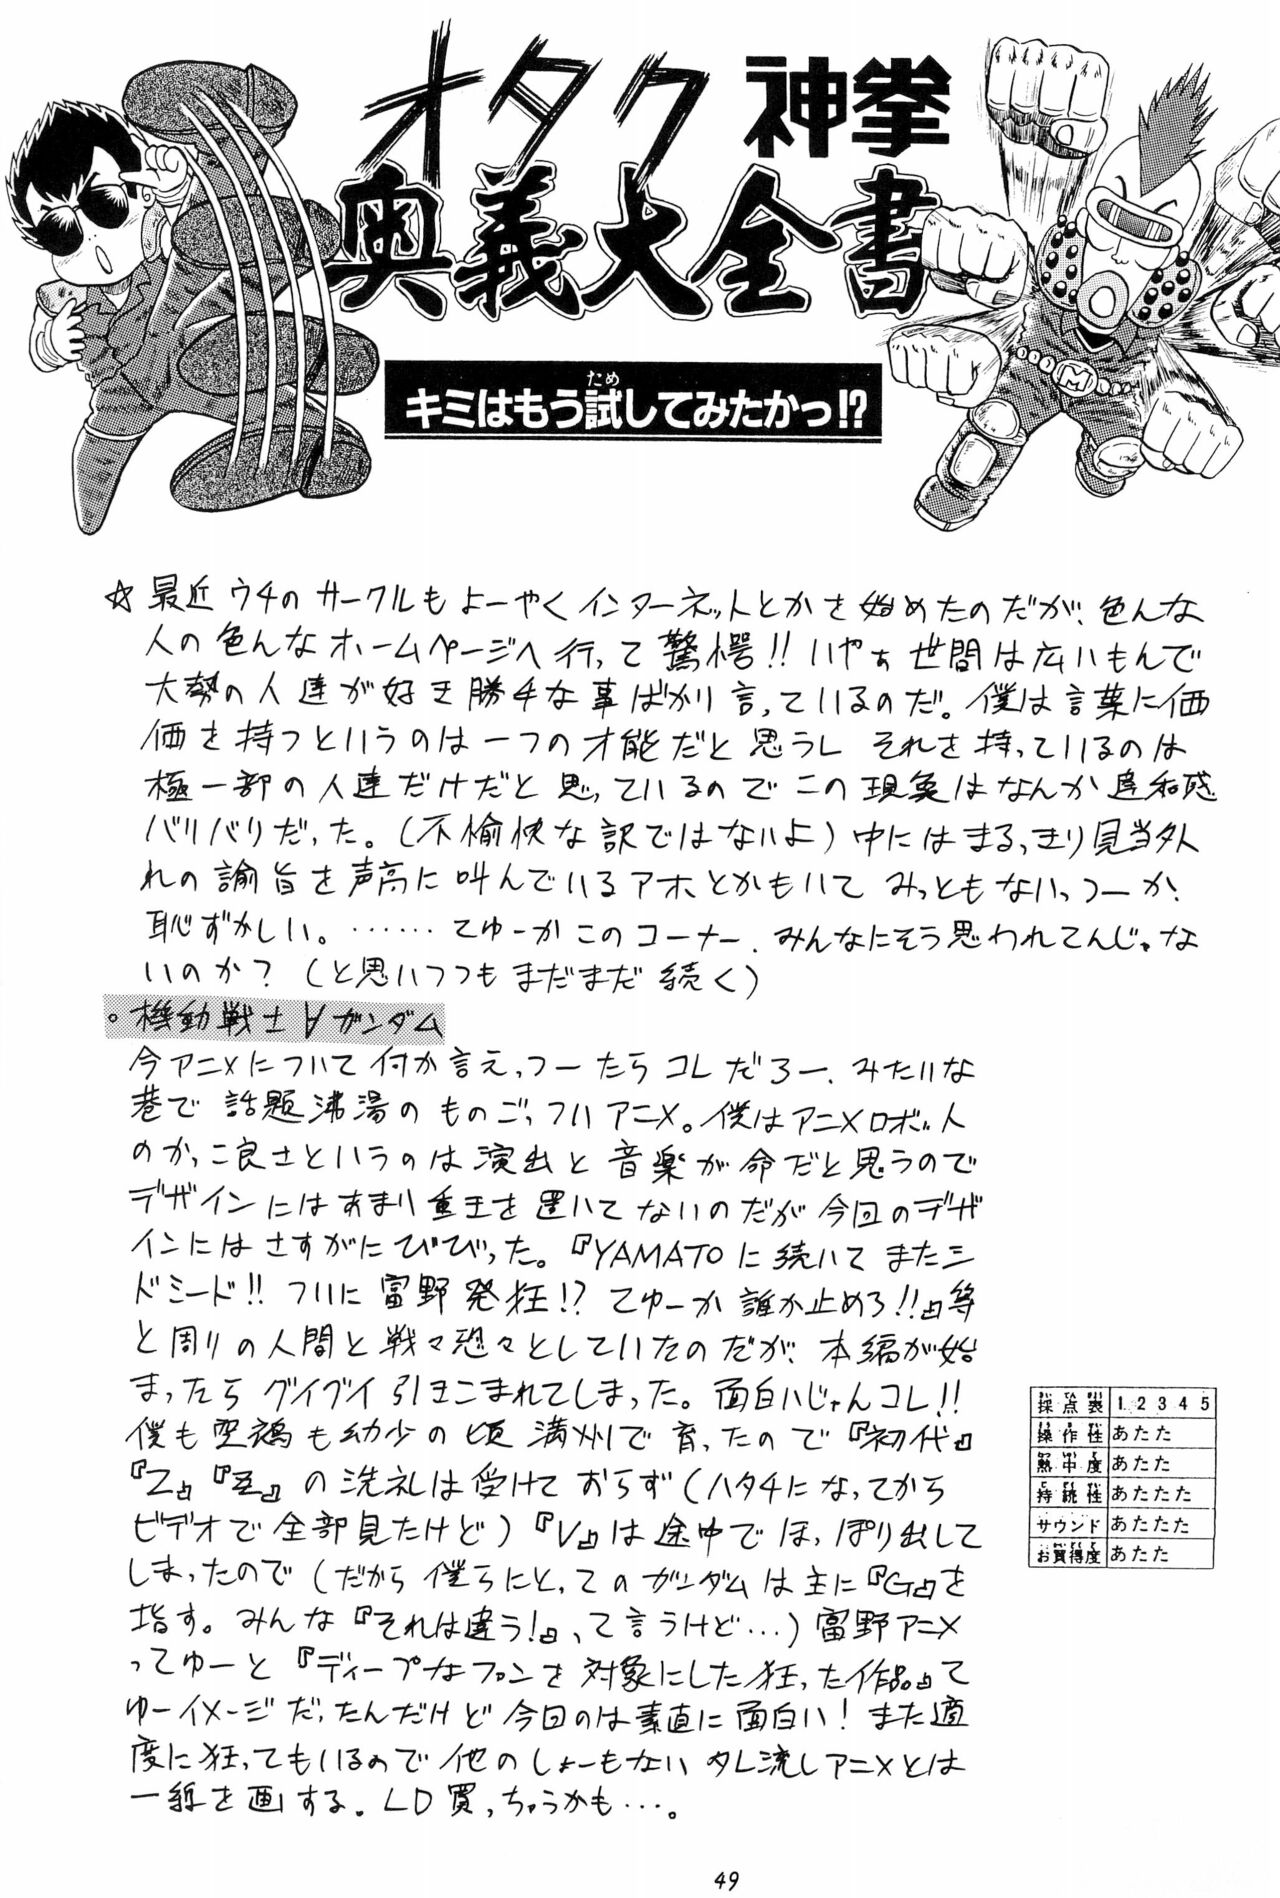 オタク神拳
奥義大全書
キミはもう試してみたかっ!?
ため
☆最近ウチのサークルもよーやくインターネットとかを始めたのだが、色んな
人の色んなホームページへ行って驚愕!!いやぁ世間は広いもんで
大勢の人達が好き勝手な事ばかり言っているのだ。僕は言葉に価
価を持つというのは一つの才能だと思うし それを持っているのは
極一部の人達だけだと思っているのでこの現象はなんか違和感
バリバリだった。(不愉快な訳ではないよ)中にはまるっきり見当外
れの諭旨を声高に叫んでいるアホとかもいて みっともないっつーか、
恥ずかしい。……てゆーかこのコーナー、みんなにそう思われてんじゃな
いのか?(と思いつつもまだまだ続く)
。機動戦士∀ガンダム
今アニメについて付か言えっつーたらコレだろー、みたいな
巷で話題沸湯のものごっついアニメ。僕はアニメロボット
のかっこ良さというのは演出と音楽が命だと思うので
デザインにはあまり重主を置いてないのだが今回のデザ
インにはさすがにびびった。『YAMATOに続いてまたシ
ドミード!!ついに富野発狂!?てゆーか誰か止めろ!!』等
と周りの人間と戦々恐々としていたのだが、本編が始
まったらグイグイ引きこまれてしまった。面白いじゃんコレ!!
僕も空鵺も幼少の頃満州で育ったので『初代』
『Z』『ZZ』の洗礼は受けておらず(ハタチになってから
ビデオで全部見たけど)『V』は途中でほっぽり出して
しまったので(だから僕らにとってのガンダムは主に『G』を
指す。みんな『それは違う!』って言うけど…)富野アニメ
ってゆーと『ディープなファンを対象にした狂った作品』て
ゆーイメージだったんだけど今回のは素直に面白い!また適
度に狂ってもいるので他のしょーもないタレ流しアニメとは
一線を画する。LD買っちゃうかも…。
採点表 1 2 3 4 5
操作性 あたた
熱中度 あたた
持続性 あたたた
サウンド あたたた
お買得度 あたた
49